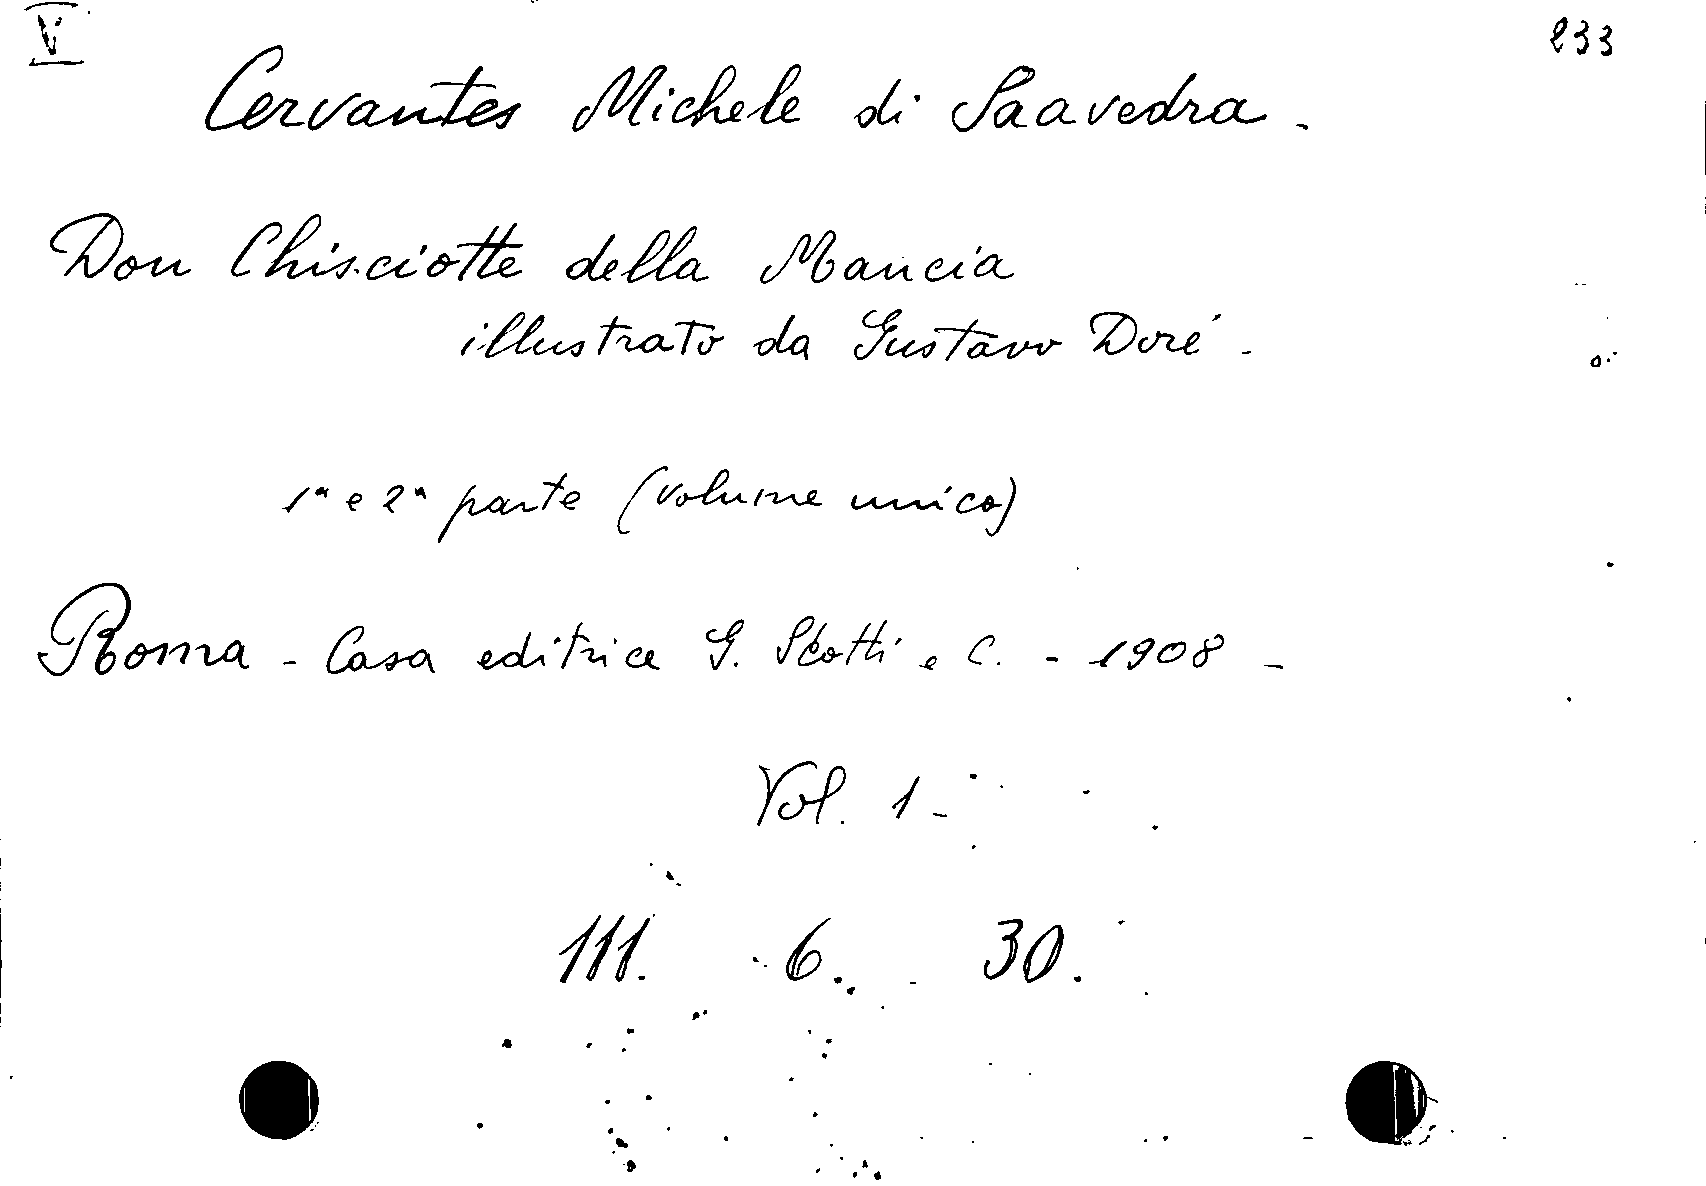 V 233
Cervantes Michele di Saavedra -
Don Chisciotte della Mancia
illustrato da Gustavo Doré -
1ª e 2ª parte (volume unico)
Roma - Casa editrice G. Scotti e C. - 1908 -
Vol. 1 -
111. 6. 30.